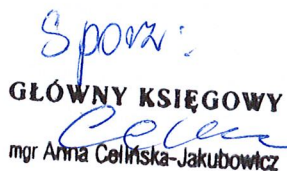 Sporz:
GŁÓWNY KSIĘGOWY
mgr Anna Celińska-Jakubowicz